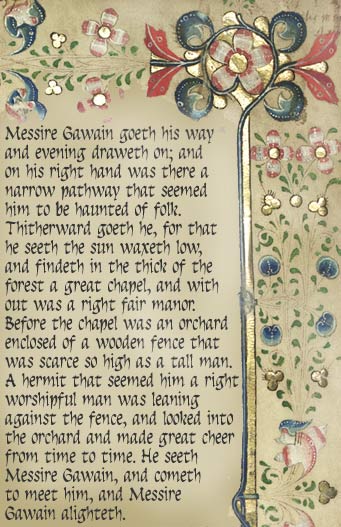 Messire Gawain goeth his way
and evening draweth on; and
on his right hand was there a
narrow pathway that seemed
him to be haunted of folk.
Thitherward goeth he, for that
he seeth the sun waxeth low,
and findeth in the thick of the
forest a great chapel, and with
out was a right fair manor.
Before the chapel was an orchard
enclosed of a wooden fence that
was scarce so high as a tall man.
A hermit that seemed him a right
worshipful man was leaning
against the fence, and looked into
the orchard and made great cheer
from time to time. He seeth
Messire Gawain, and cometh
to meet him, and Messire
Gawain alighteth.